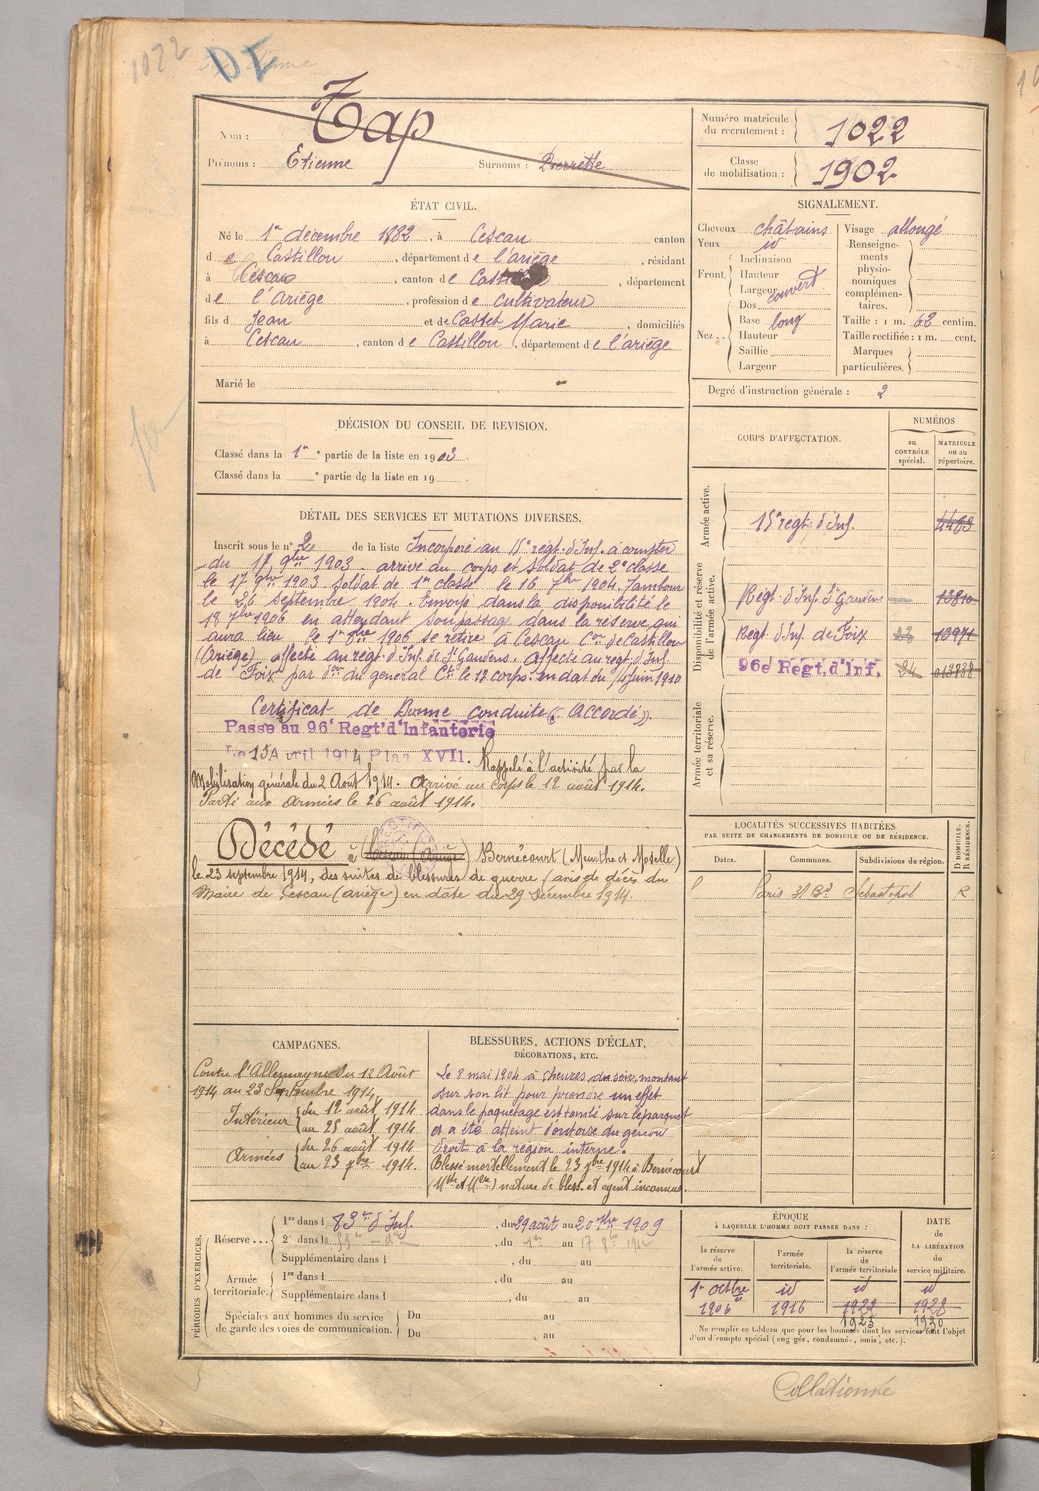 1022
DE
Nom : Tap
Prénoms : Etienne Surnoms : Pierrette
Numéro matricule du recrutement : 1022
Classe de mobilisation : 1902
ÉTAT CIVIL.
Né le 1er décembre 1882, à Cescau canton
de Castillon, département de l'ariège, résidant
à Cescau, canton de Castillon, département
de l'Ariège, profession de cultivateur
fils d Jean et de Castet Marie, domiciliés
à Cescau, canton de Castillon, département de l'ariège
Marié le
SIGNALEMENT.
Cheveux châtains
Yeux id
Front Inclinaison
Hauteur
Largeur couvert
Nez Dos
Base long
Hauteur
Saillie
Largeur
Visage allongé
Renseignements physionomiques complémentaires.
Taille : 1 m. 62 centim.
Taille rectifiée : 1 m. cent.
Marques particulières.
Degré d'instruction générale : 2
DÉCISION DU CONSEIL DE REVISION.
Classé dans la 1re partie de la liste en 1903.
Classé dans la e partie de la liste en 19 .
DÉTAIL DES SERVICES ET MUTATIONS DIVERSES.
Inscrit sous le n° 2 de la liste Incorporé au 15e régt. d'Inf. à compter
du 17 9bre 1903. arrivé au corps et soldat de 2e classe
le 17 9bre 1903. soldat de 1re classe le 16 7bre 1904. Tambour
le 26 septembre 1904. Envoyé dans la disponibilité le
18 7bre 1906 en attendant son passage dans la réserve qui
aura lieu le 1er 1906 se retire à Cescau Con de Castillon
(Ariège) affecté au régt. d'Inf. de St Gaudens. Affecté au régt. d'Inf.
de Foix par du général Ct le 17 corps. en date du juin 1910
Certificat de Bonne conduite « Accordé ».
Passé au 96e Regt d'Infanterie
Le 15 Avril 1914 Plan XVII. Rappelé à l'activité par la
Mobilisation générale du 2 Août 1914. Arrivé au corps le 12 août 1914.
Parti aux Armées le 26 août 1914.
Décédé à Cescau (Ariège) Bernécourt (Meurthe et Moselle)
le 23 septembre 1914, des suites de blessures de guerre (avis de décès du
Maire de Cescau (ariège) en date du 29 Décembre 1914.
CORPS D'AFFECTATION.
NUMÉROS
au CONTRÔLE spécial.
MATRICULE ou au répertoire.
Armée active.
15e régt. d'Inf.
Disponibilité et réserve de l'armée active.
Régt. d'Inf. St Gaudens
Régt d'Inf. de Foix
96e Régt. d'Inf.
Armée territoriale et sa réserve.
LOCALITÉS SUCCESSIVES HABITÉES
PAR SUITE DE CHANGEMENTS DE DOMICILE OU DE RÉSIDENCE.
Dates. Communes. Subdivisions de région. D DOMICILE, R RÉSIDENCE.
Paris 31 Bd Sébastopol R
CAMPAGNES.
Contre l'Allemagne du 12 Août
1914 au 23 Septembre 1914
Intérieur du 12 août 1914
au 25 août 1914
Armées du 26 août 1914
au 23 7bre 1914.
BLESSURES, ACTIONS D'ÉCLAT,
DÉCORATIONS, ETC.
Le 8 mai 1904 à heures du soir, montant
sur son lit pour prendre un effet
dans le paquetage est tombé sur le parquet
et a été atteint d'entorse du genou
droit à la région interne.
Blessé mortellement le 23 7bre 1914 à Bernécourt
(Mthe et Mlle) nature de bless. et agent inconnus.
PÉRIODES D'EXERCICES.
Réserve ... 1re dans l 83e d'Inf., du 29 août au 20 7bre 1909
2e dans l , du 1er au 17
Supplémentaire dans l , du au
Armée territoriale. 1re dans l , du au
Supplémentaire dans l , du au
Spéciales aux hommes du service de garde des voies de communication. Du au
Du au
ÉPOQUE
À LAQUELLE L'HOMME DOIT PASSER DANS :
la réserve de l'armée active.
l'armée territoriale.
la réserve de l'armée territoriale
DATE de LA LIBÉRATION du service militaire.
1er octbre id id id
1906 1916 1922 1928
1923 1930
Ne remplir ce tableau que pour les hommes dont les services font l'objet
d'un décompte spécial (engagés, condamnés, omis, etc.).
Collationné